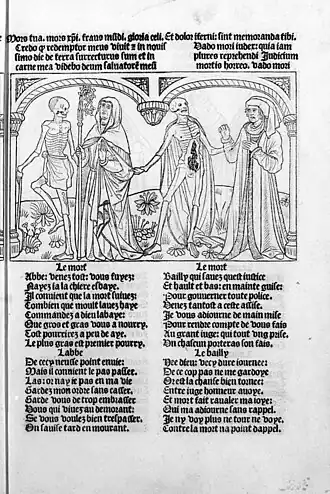 Mors tua. mors xp̄i. fraus mūdi. gloria celi. Et dolor iferni: sint memoranda tibi.
Credo q̄ redemptor meus viuit ⁊ in nouis
simo die de terra surrecturus sum et in
carne mea videbo deum saluatorē meū
Vado mori iudex: quia iam
plures reprehendi Judicium
mortis horreo. vado mori
Le mort
Abbe: venez tost: vous fuyez:
Nayez ia la chiere esbaye.
Il conuient que la mort suiuez:
Combien que moult lauez haye
Commandez a dieu labaye:
Que gros et gras vous a nourry.
Tost pourrirez a peu de aye.
Le plus gras est premier pourry.
Labbe
De cecy neusse point enuie:
Mais il conuient le pas passer.
Las: or nay ie pas en ma vie
Garde mon ordre sans casser.
Garde vous de trop embrasser
Vous qui viuez au demorant:
Se vous voulez bien trespasser.
On sauise tard en mourant.
Le mort
Bailly qui sauez quest iustice
Et hault et bas: en mainte guise:
Pour gouuerner toute police.
Venez tantost a ceste assise.
Je vous adiourne de main mise
Pour rendre compte de vous fais
Au grant iuge: qui tout vng prise.
Un chascun porteras son fais.
Le bailly
Hee dieu: vecy dure iournee:
De ce cop pas ne me gardoye
Or est la chanse bien tornee:
Entre iuge honneur auoye.
Et mort fait raualer ma ioye:
Qui ma adiourne sans rappel.
Je ny voy plus ne tour ne voye.
Contre la mort na point dappel.